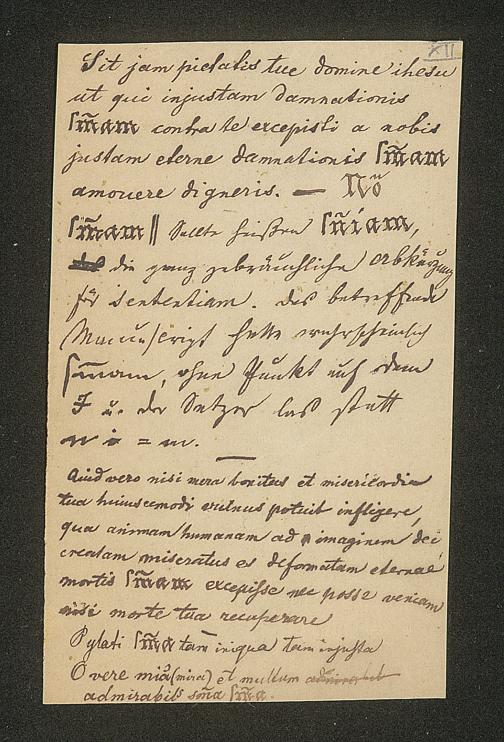 XII
Sit jam pietatis tue domine ihesu
ut qui injustam damnationis
sm̄am contra te excepisti a nobis
justam eterne damnationis sm̄am
amouere digneris. — No
sm̄am || Sollte heißen sn̄iam,
die ganz gebräuchliche Abkürzung
für sententiam. Das betreffende
Manuscript hatte wahrscheinlich
sm̄am, ohne Punkt auf dem
I u. der Setzer las statt
n i = m.
Quid vero nisi mera bonitas et misericordia
tua huiuscemodi vulnus potuit infligere,
qua animam humanam ad imaginem dei
creatam miseratus es deformatam eternae
mortis sm̄am excepisse nec posse veniam
nisi morte tua recuperare
Pylati sm̄a tam iniqua tam injusta
O vere mia (mira) et multum
admirabilis sm̄a